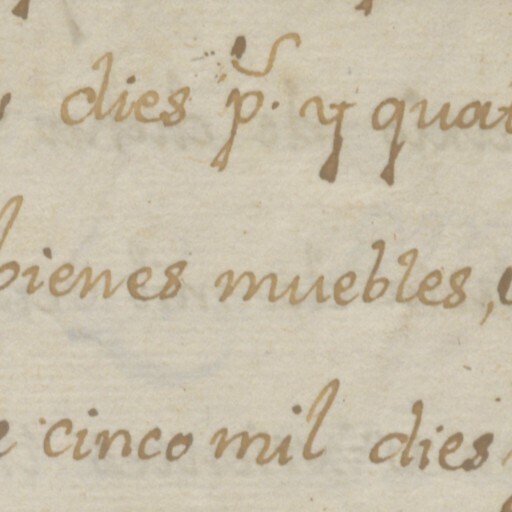 dies p. y quat
bienes muebles,
cinco mil dies